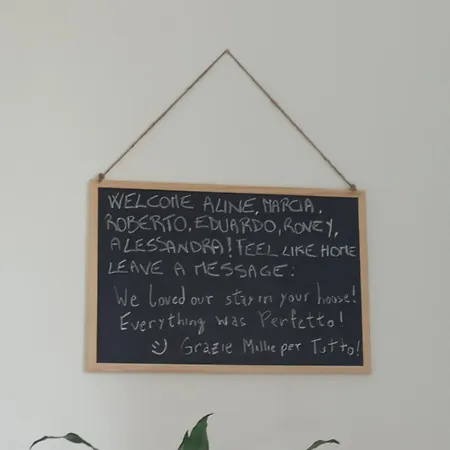 WELCOME ALINE, MARCIA,
ROBERTO, EDUARDO, RONEY,
ALESSANDRA! FEEL LIKE HOME
LEAVE A MESSAGE:
We loved our stay in your house!
Everything was Perfetto!
:) Grazie Mille per Tutto!